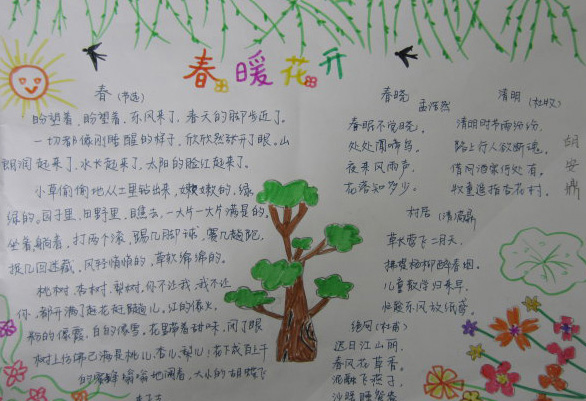 春暖花开
春（节选）
盼望着，盼望着，东风来了，春天的脚步近了。
一切都像刚睡醒的样子，欣欣然张开了眼。山
朗润起来了，水长起来了，太阳的脸红起来了。
小草偷偷地从土里钻出来，嫩嫩的，绿
绿的。园子里，田野里，瞧去，一大片一大片满是的。
坐着，躺着，打两个滚，踢几脚球，赛几趟跑，
捉几回迷藏。风轻悄悄的，草软绵绵的。
桃树、杏树、梨树，你不让我，我不让
你，都开满了花赶趟儿。红的像火，
粉的像霞，白的像雪。花里带着甜味，闭了眼
树上仿佛已满是桃儿、杏儿、梨儿！花下成百上千
的蜜蜂嗡嗡地闹着，大小的蝴蝶飞
春晓
孟浩然
春眠不觉晓，
处处闻啼鸟。
夜来风雨声，
花落知多少。
清明（杜牧）
清明时节雨纷纷，
路上行人欲断魂。
借问酒家何处有，
牧童遥指杏花村。
胡安鼎
村居（清 高鼎）
草长莺飞二月天，
拂堤杨柳醉春烟。
儿童散学归来早，
忙趁东风放纸鸢。
绝句（杜甫）
迟日江山丽，
春风花草香。
泥融飞燕子，
沙暖睡鸳鸯